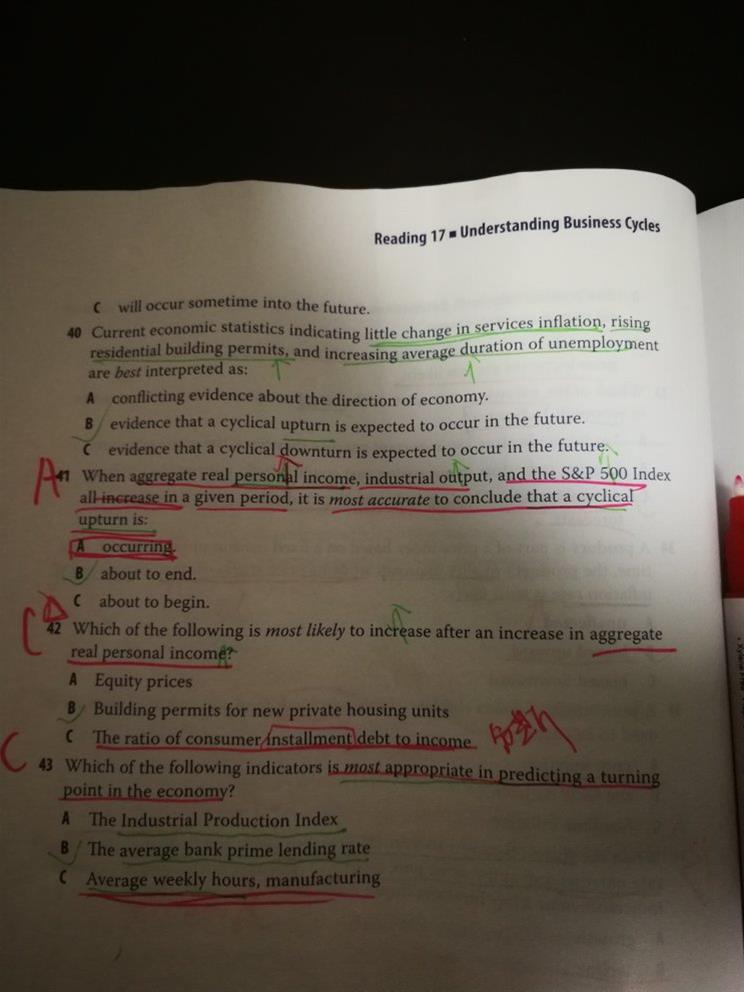 Reading 17 ■ Understanding Business Cycles
C will occur sometime into the future.
40 Current economic statistics indicating little change in services inflation, rising
residential building permits, and increasing average duration of unemployment
are best interpreted as:
A conflicting evidence about the direction of economy.
B evidence that a cyclical upturn is expected to occur in the future.
C evidence that a cyclical downturn is expected to occur in the future.
A 41 When aggregate real personal income, industrial output, and the S&P 500 Index
all increase in a given period, it is most accurate to conclude that a cyclical
upturn is:
A occurring.
B about to end.
C about to begin.
C 42 Which of the following is most likely to increase after an increase in aggregate
real personal income?
A Equity prices
B Building permits for new private housing units
C The ratio of consumer installment debt to income
C 43 Which of the following indicators is most appropriate in predicting a turning
point in the economy?
A The Industrial Production Index
B The average bank prime lending rate
C Average weekly hours, manufacturing